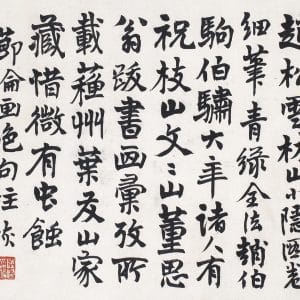 趙松雪松山小隱圖卷
細筆青綠全法趙伯
駒伯驌大年諸人有
祝枝山文山董思
翁跋書画彙攷所
載蘓州葉友山家
藏惜微有虫蝕
節論画絶句注